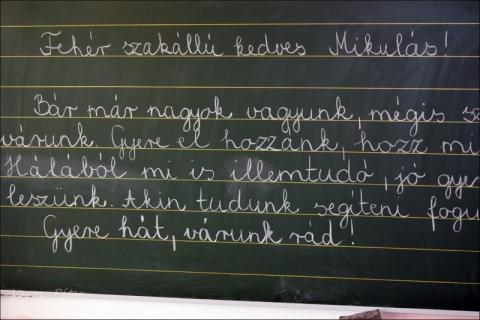 Fehér szakállú kedves Mikulás!
Bár már nagyok vagyunk, mégis sz
várunk. Gyere el hozzánk, hozz mi
Hálából mi is illemtudó, jó gye
leszünk. Akin tudunk segíteni fogu
Gyere hát, várunk rád!